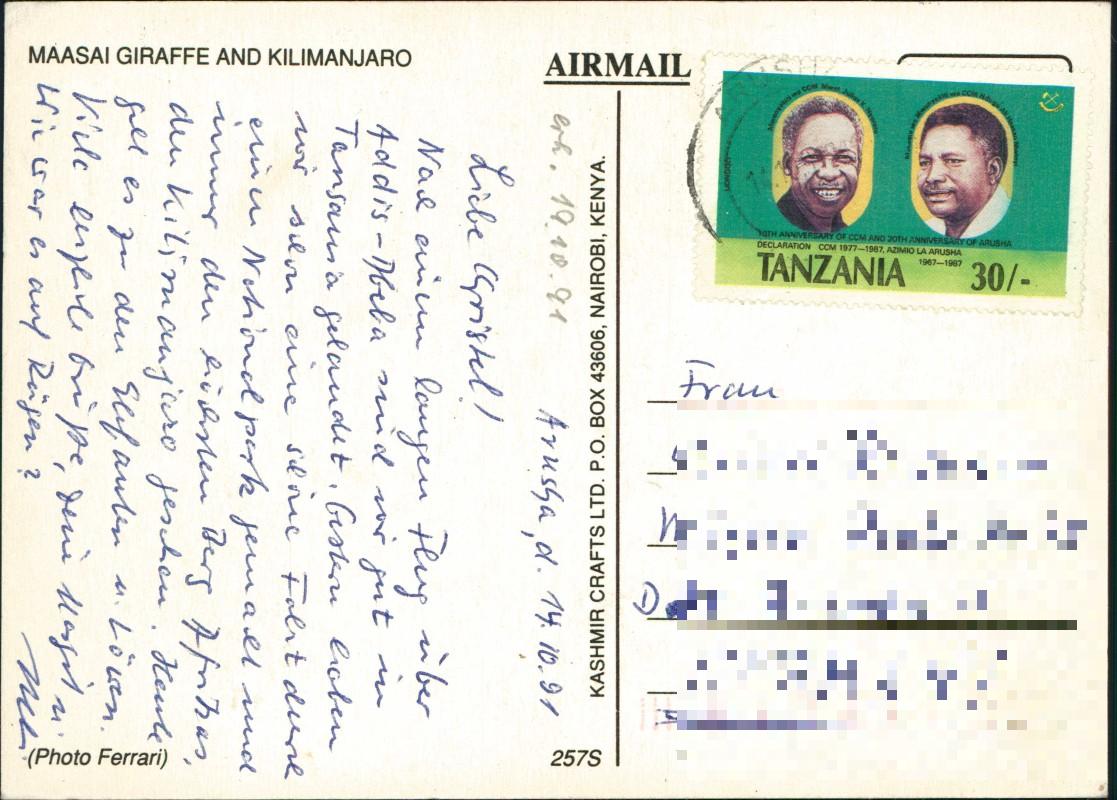 MAASAI GIRAFFE AND KILIMANJARO
AIRMAIL
erh. 19.10.91
Arusha, d. 14.10.91
Liebe Christel!
Nach einem langen Flug über
Addis-Abeba sind wir gut in
Tansania gelandet. Gestern haben
wir schon eine schöne Fahrt durch
einen Nationalpark gemacht und
immer den höchsten Berg Afrikas,
den Kilimanjaro gesehen. Heute
geht es zu den Elefanten u. Löwen.
Viele herzliche Grüße, Deine Margit u.
Wie war es auf Rügen?
(Photo Ferrari)
257S
KASHMIR CRAFTS LTD. P.O. BOX 43606, NAIROBI, KENYA.
10TH ANNIVERSARY OF CCM AND 20TH ANNIVERSARY OF ARUSHA
DECLARATION CCM 1977–1987, AZIMIO LA ARUSHA
1967–1987
TANZANIA 30/-
Frau